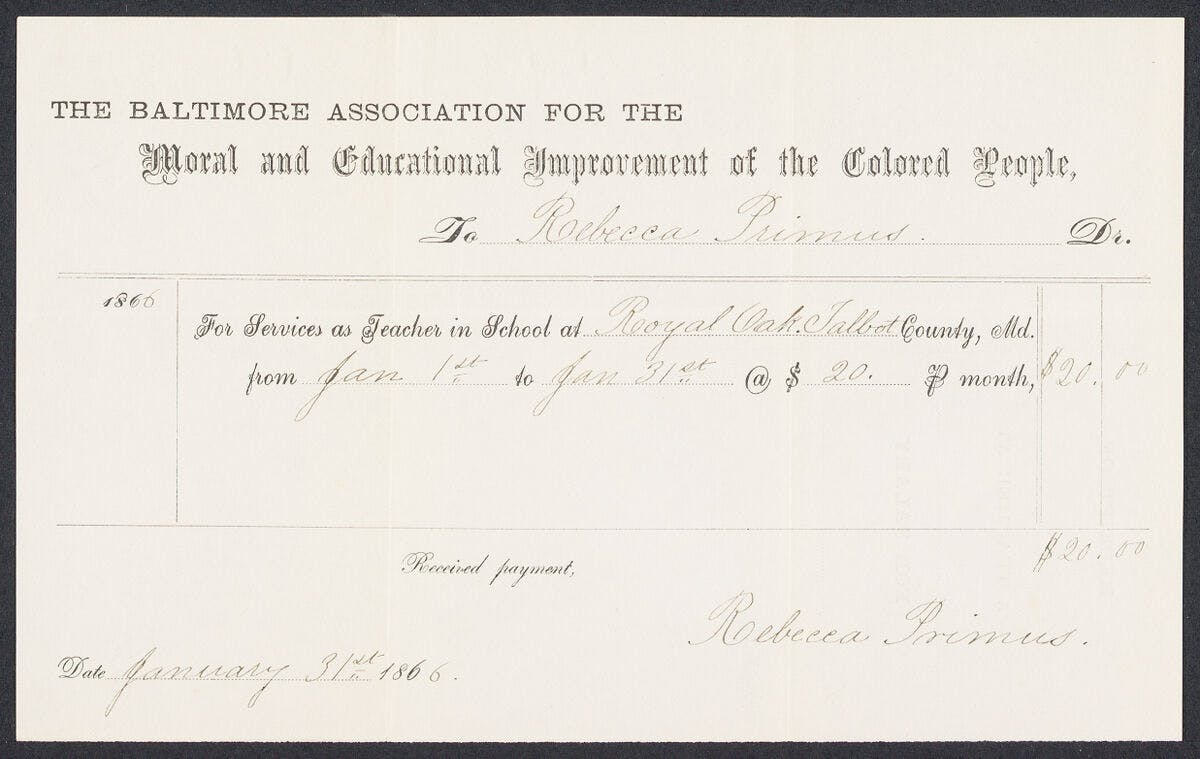 THE BALTIMORE ASSOCIATION FOR THE
Moral and Educational Improvement of the Colored People,
To Rebecca Primus. Dr.
1866
For Services as Teacher in School at Royal Oak. Talbot County, Md.
from Jan 1st to Jan 31st @ $ 20. ⅌ month, $20. 00
$20. 00
Received payment,
Rebecca Primus.
Date January 31st 1866.